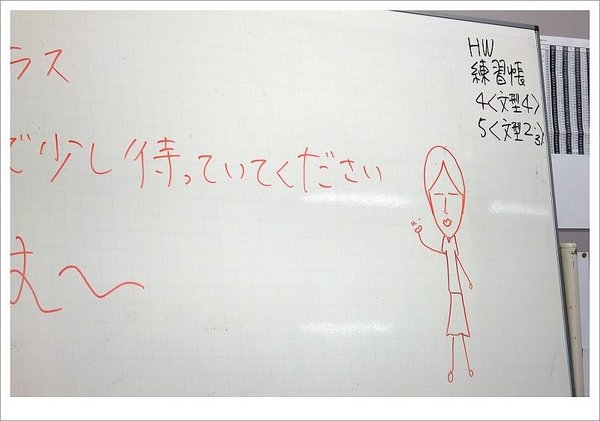 ラス
で少し待っていてください
む〜
HW
練習帳
4〈文型4〉
5〈文型2,3〉